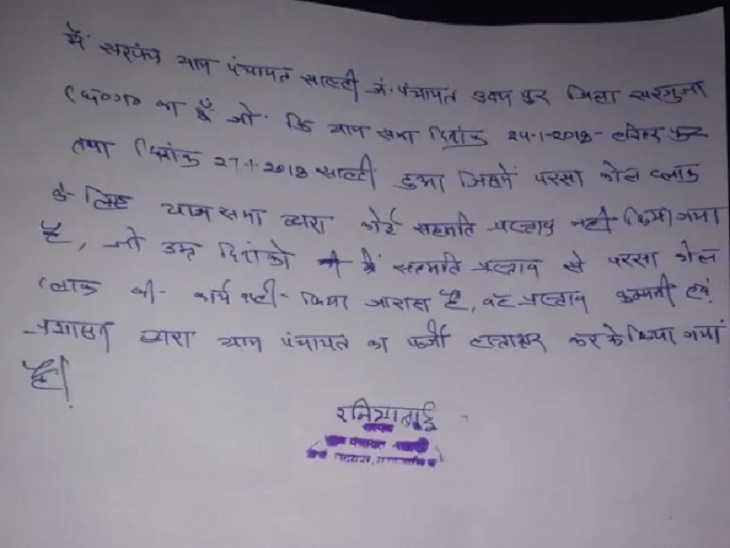 मैं सरपंच ग्राम पंचायत साल्ही ज. पंचायत उदय पुर जिला सरगुजा
(छ०ग० का हूँ जो कि ग्राम सभा दिनांक 24-1-2018- हरिहर पुर
तथा दिनांक 27-1-2018 साल्ही हुआ जिसमें परसा कोल ब्लाक
के लिए ग्राम सभा द्वारा कोई सहमति प्रस्ताव नहीं किया गया
है, जो उक्त दिनांको में सहमति प्रस्ताव से परसा कोल
ब्लाक की- कार्य किया जा रहा है, वह प्रस्ताव कम्पनी एवं
प्रशासन द्वारा ग्राम पंचायत का फर्जी हस्ताक्षर कर के किया गया
है।
रनियाबाई
सरपंच
ग्राम पंचायत साल्ही